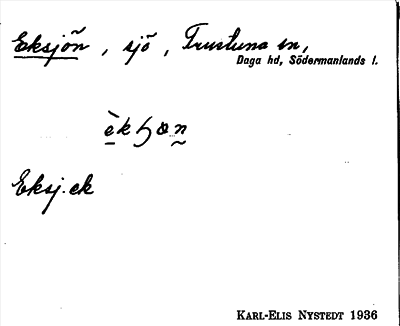 Eksjön, sjö, Trustuna sn,
Daga hd, Södermanlands l.
Eksj. ek
KARL-ELIS NYSTEDT 1936